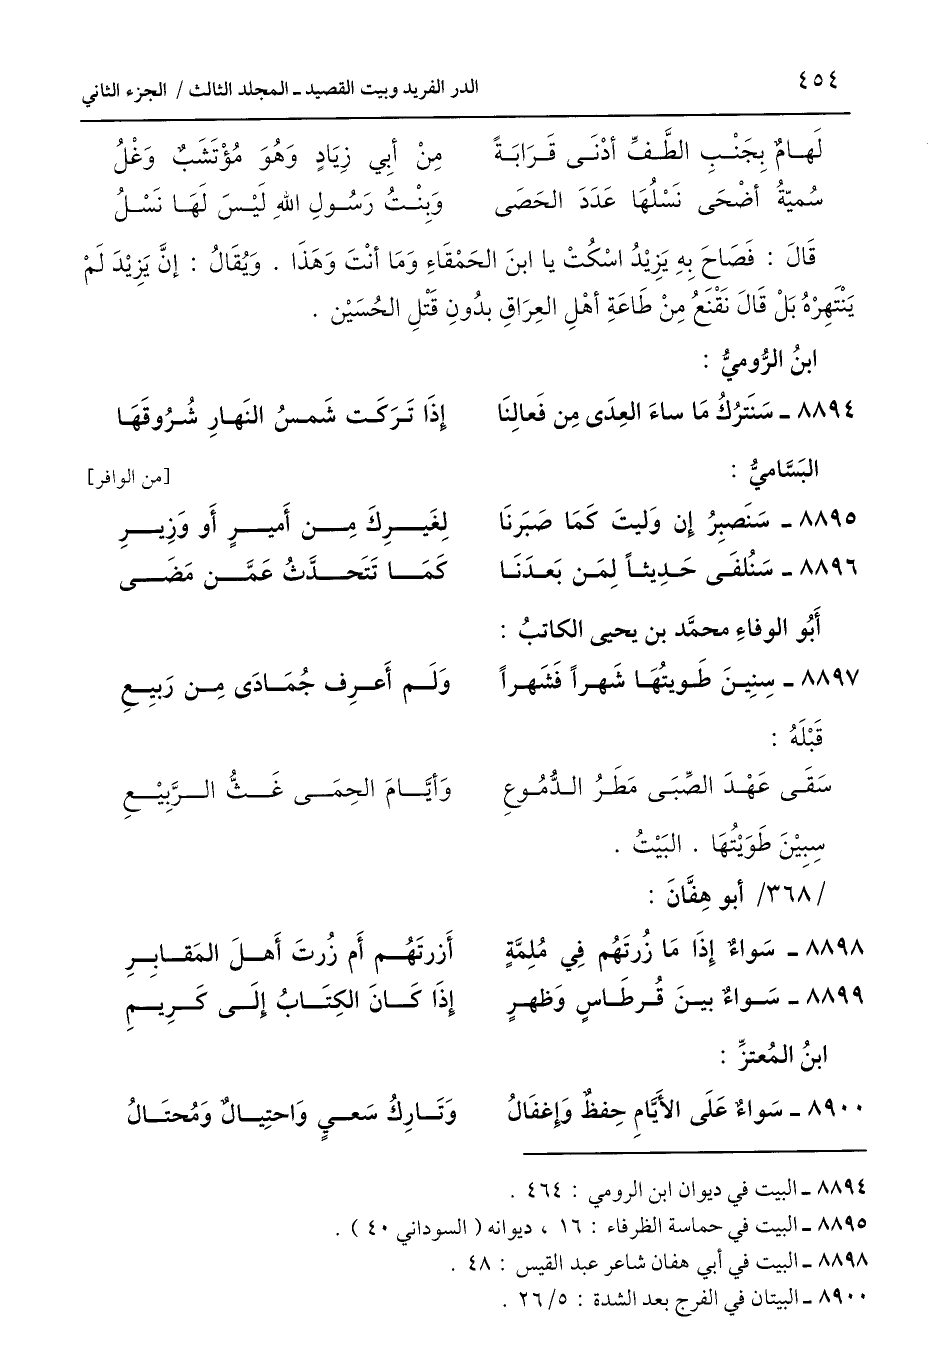 ٤٥٤ الدر الفريد وبيت القصيد ـ المجلد الثالث / الجزء الثاني
لَهَامٌ بِجَنْبِ الطَّفِّ أدْنَى قَرَابَةً مِنْ أبِي زِيَادٍ وَهُوَ مُؤْتَشَبٌ وَغْلُ
سُمَيَّةُ أضْحَى نَسْلُهَا عَدَدَ الحَصَى وَبِنْتُ رَسُولِ اللهِ لَيْسَ لَهَا نَسْلُ
قَالَ : فَصَاحَ بِهِ يَزِيْدُ اسْكُتْ يا ابنَ الحَمْقَاءِ وَمَا أنْتَ وَهَذَا . وَيُقَالُ : إنَّ يَزِيْدَ لَمْ
يَنْتَهِرْهُ بَلْ قَالَ نَقْنَعُ مِنْ طَاعَةِ أهْلِ العِرَاقِ بِدُونِ قَتْلِ الحُسَيْنِ .
ابنُ الرُّوميُّ :
٨٨٩٤ ـ سَنَترُكُ مَا ساءَ العِدَى مِن فَعالنِا إذَا تَرَكَت شَمسُ النَهارِ شُرُوقَهَا
البَسَّاميُّ : [من الوافر]
٨٨٩٥ ـ سَنَصبِرُ إن وَليتَ كَمَا صَبَرنَا لِغَيرِكَ مِن أَميرٍ أَو وَزِيرِ
٨٨٩٦ ـ سَنُلفَى حَدِيثاً لِمَن بَعدَنَا كَمَا تَتَحدَّثُ عَمَّن مَضَى
أَبُو الوفاءِ محمَّد بن يحيى الكاتبُ :
٨٨٩٧ ـ سِنِينَ طَويتُهَا شَهراً فَشَهراً وَلَم أَعرِف جُمَادَى مِن رَبِيعِ
قَبْلَهُ :
سَقَى عَهْدَ الصِّبَى مَطَرُ الدُّمُوعِ وَأيَّامَ الحِمَى غَثُّ الرَّبِيْعِ
سِنِيْنَ طَوَيْتُهَا . البَيْتُ .
/٣٦٨/ أبو هِفَّانَ :
٨٨٩٨ ـ سَواءٌ إذَا مَا زُرتَهُم فِي مُلِمَّةٍ أَزرتَهُم أَم زُرتَ أَهلَ المَقَابِرِ
٨٨٩٩ ـ سَواءٌ بينَ قُرطَاسٍ وَظهرٍ إذَا كَانَ الكِتَابُ إلَى كَرِيمِ
ابنُ المُعتزِّ :
٨٩٠٠ ـ سَواءٌ عَلَى الأيَّامِ حِفظٌ وَإغفَالُ وَتَارِكُ سَعيٍ وَاحتِيالٌ وَمُحتَالُ
٨٨٩٤ ـ البيت في ديوان ابن الرومي : ٤٦٤ .
٨٨٩٥ ـ البيت في حماسة الظرفاء : ١٦ ، ديوانه ( السوداني ٤٠ ) .
٨٨٩٨ ـ البيت في أبي هفان شاعر عبد القيس : ٤٨ .
٨٩٠٠ ـ البيتان في الفرج بعد الشدة : ٥/ ٢٦ .